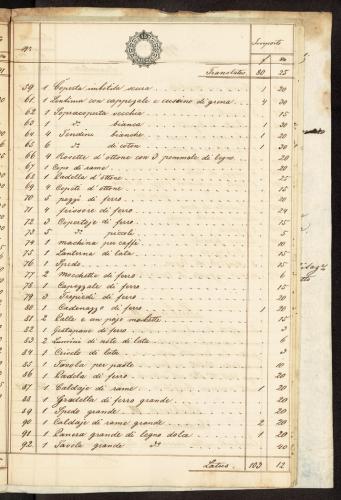 Importo
N.º f xn
Translatus. 80 25
59 1 Coperta imbotida scura 1 20
61 1 Lentima con cappezale e cussino di grena 4 30
62 1 Sopracoperta vecchia 15
63 1 dº bianca 1 20
64 4 Tendine bianche 1 30
65 6 dº di coton 1 30
66 4 Rosette d'ottone con 3 pommole di legno 20
67 1 Capo di rame 20
68 1 Padella d'ottone 25
69 4 Copeti d'ottone 15
70 5 pezzi di ferro 20
71 4 frissore di ferro 24
72 3 Copertoje di ferro 15
73 5 dº piccoli 5
74 1 machina per caffè 10
75 1 Lanterna di lata 15
76 1 Spedo 15
77 2 Mocchette di ferro 6
78 1 Capezzale di ferro 15
79 3 Trepiedi di ferro 20
80 1 Cadenazzo di ferro 1 20
81 2 Palle e un pajo molette 15
82 1 Gratapane di ferro 3
83 2 Lumini di note di lata 6
84 1 Criolo di lata 3
85 1 Tavola per paste 10
86 1 Padela di ferro 20
87 1 Caldaje di rame 1 20
88 1 Gradella di ferro grande 20
89 1 Spedo grande 20
90 1 Caldaje di rame grande 2 20
91 1 Panera grande di legno dolce 1 20
92 1 Tavola grande dº 40
Latus. 103 12